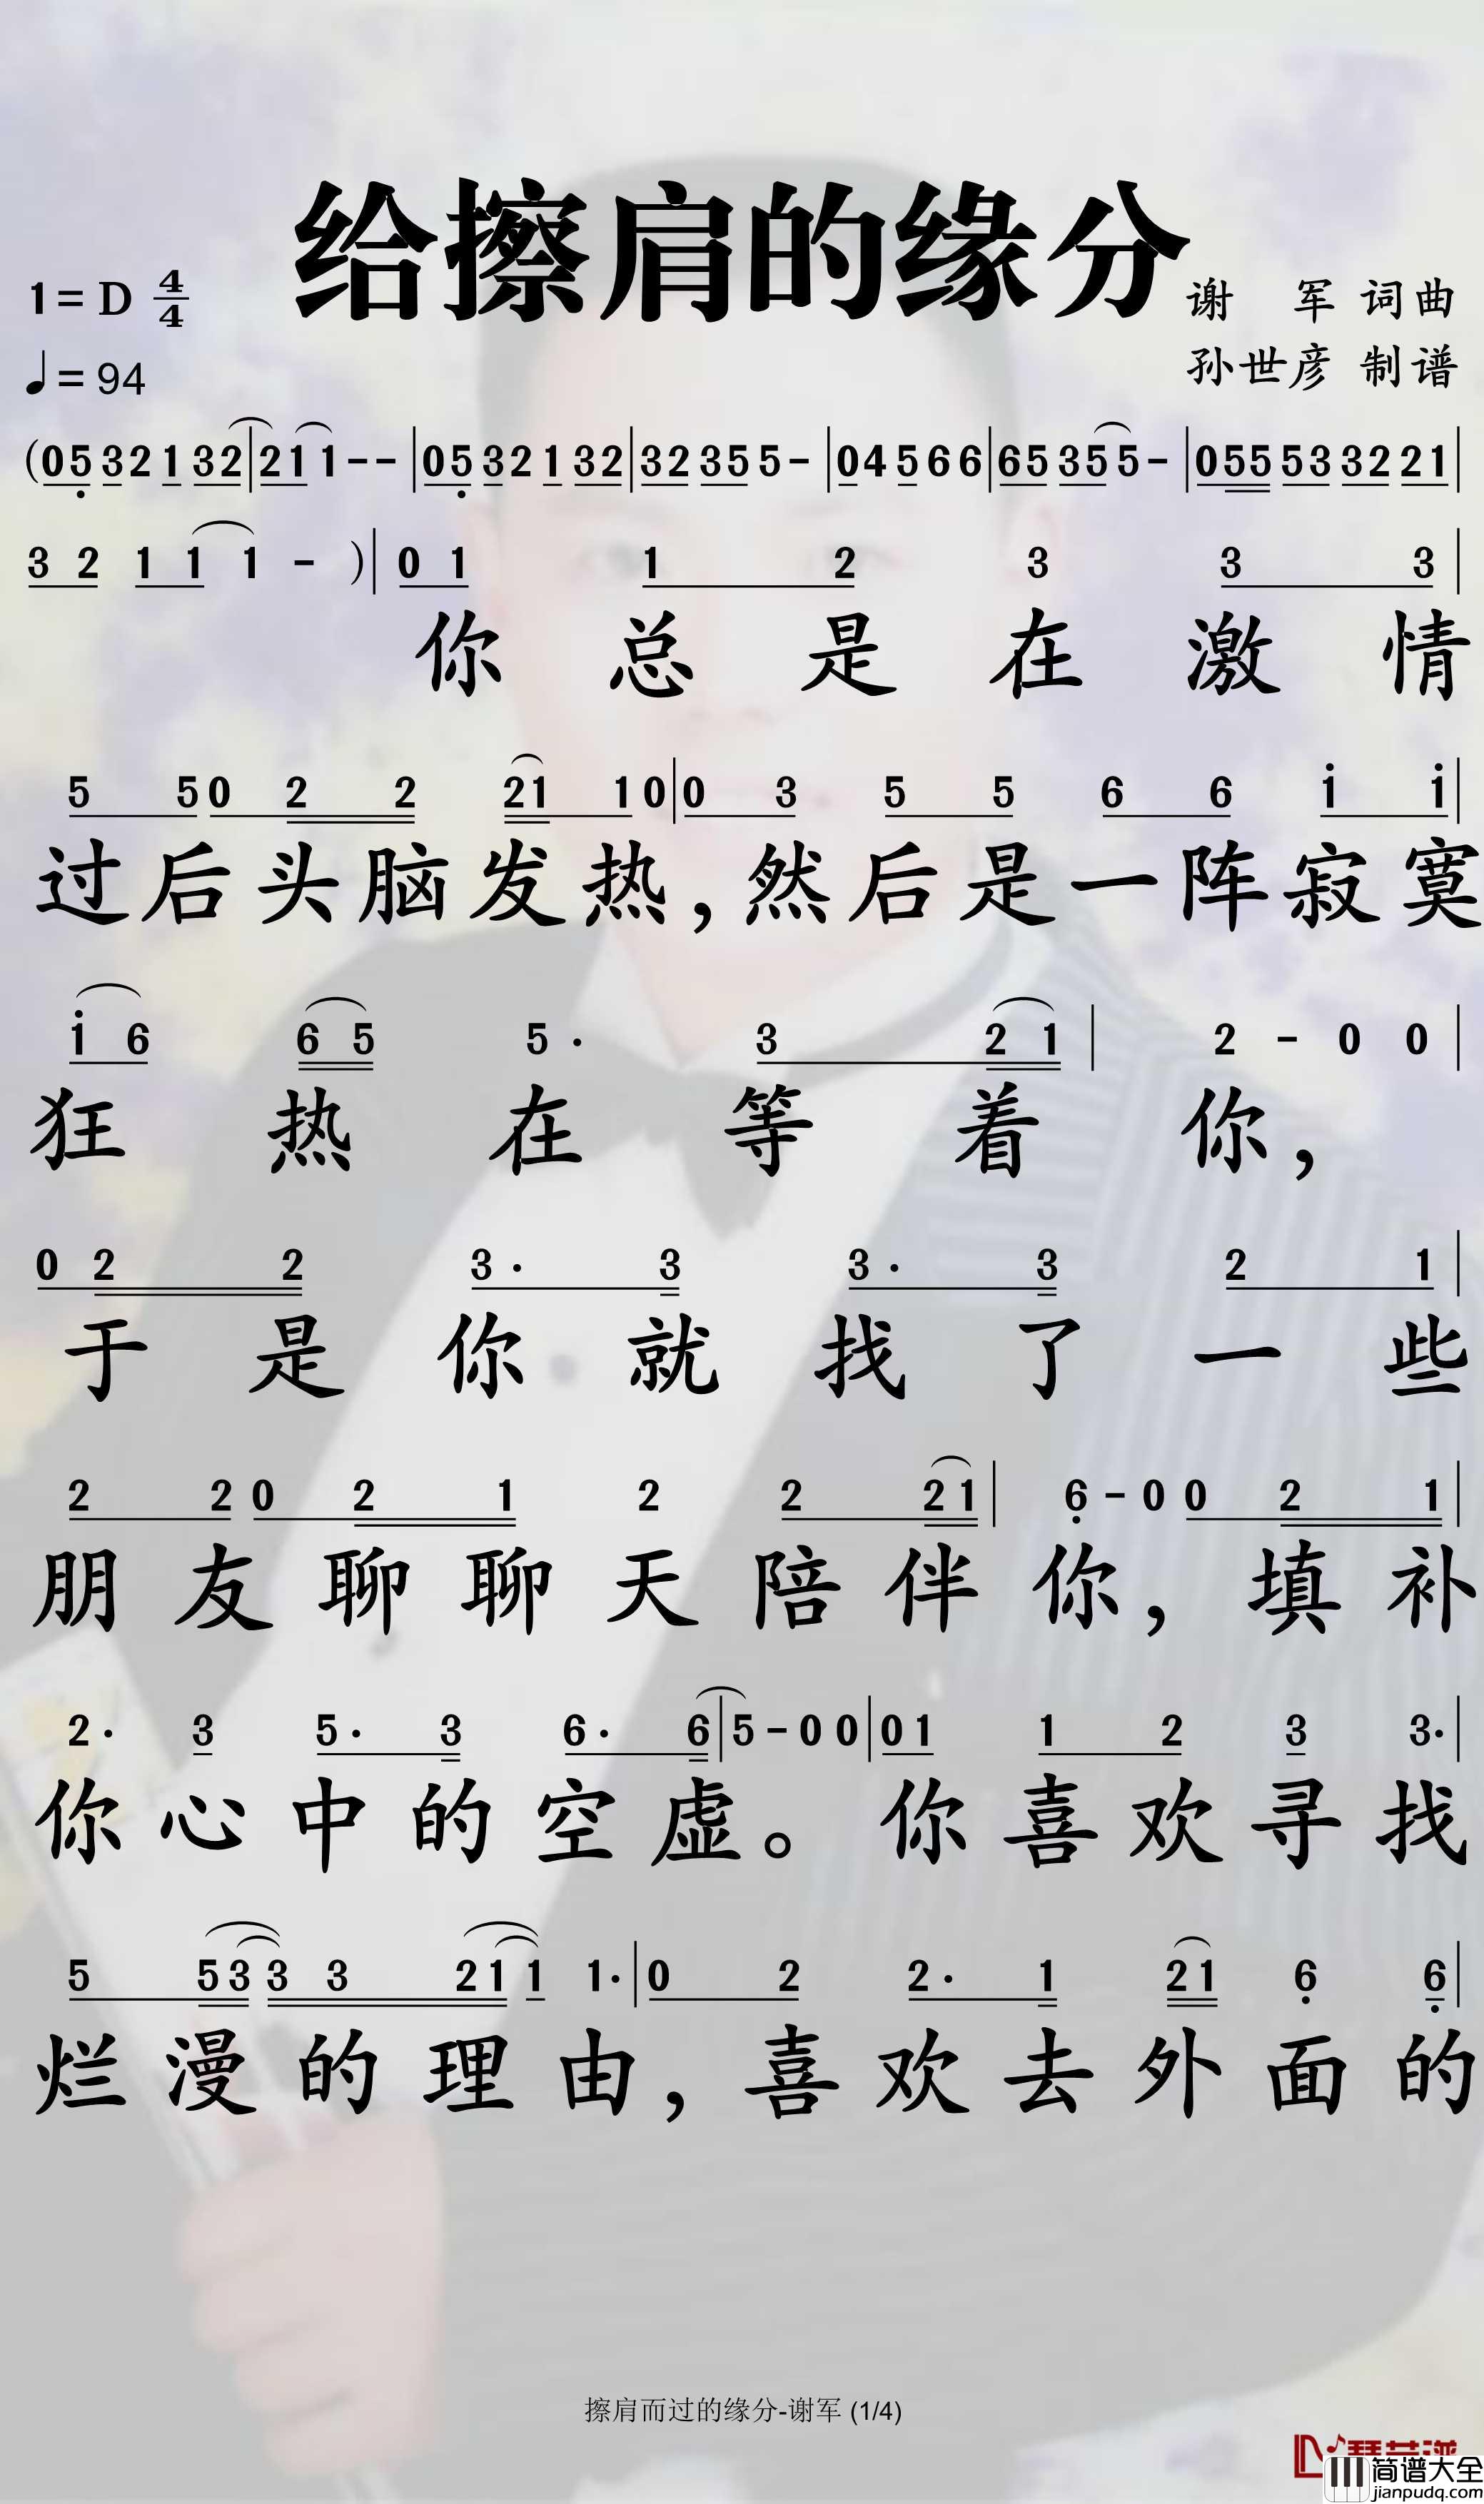 给擦肩的缘分
1=D 4/4
谢 军 词曲
♩=94
孙世彦 制谱
(05 32 1 32|21 1--|05 32 1 32|32 35 5-|04 5 6 6|65 35 5-|055 53 32 21|
3 2 1 1 1 - )|0 1 1 2 3 3 3|
你 总 是 在 激 情
5 5 0 2 2 21 1 0|0 3 5 5 6 6 i i|
过后头脑发热，然后是一阵寂寞
i 6 6 5 5· 3 2 1| 2 - 0 0|
狂 热 在 等 着 你，
0 2 2 3· 3 3· 3 2 1|
于 是 你 就 找 了 一 些
2 2 0 2 1 2 2 2 1| 6 - 0 0 2 1|
朋 友 聊 聊 天 陪 伴 你，填 补
2· 3 5· 3 6· 6|5 - 0 0|0 1 1 2 3 3·|
你 心 中 的 空 虚。 你 喜 欢 寻 找
5 5 3 3 3 2 1 1 1·|0 2 2· 1 2 1 6 6|
烂 漫 的 理 由，喜 欢 去 外 面 的
擦肩而过的缘分-谢军 (1/4)
简谱大全
jianpudq.com